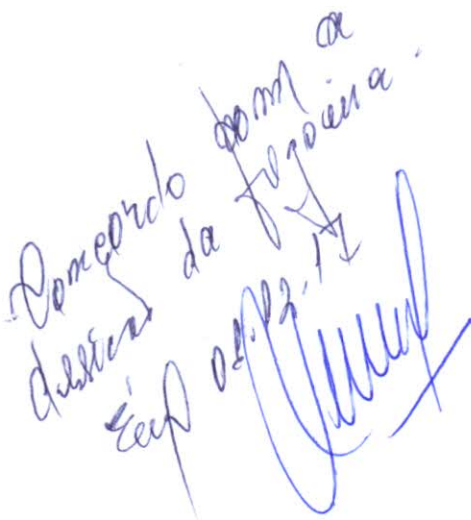 Concordo com a
decisão da pregoeira.
Em 02.02.17